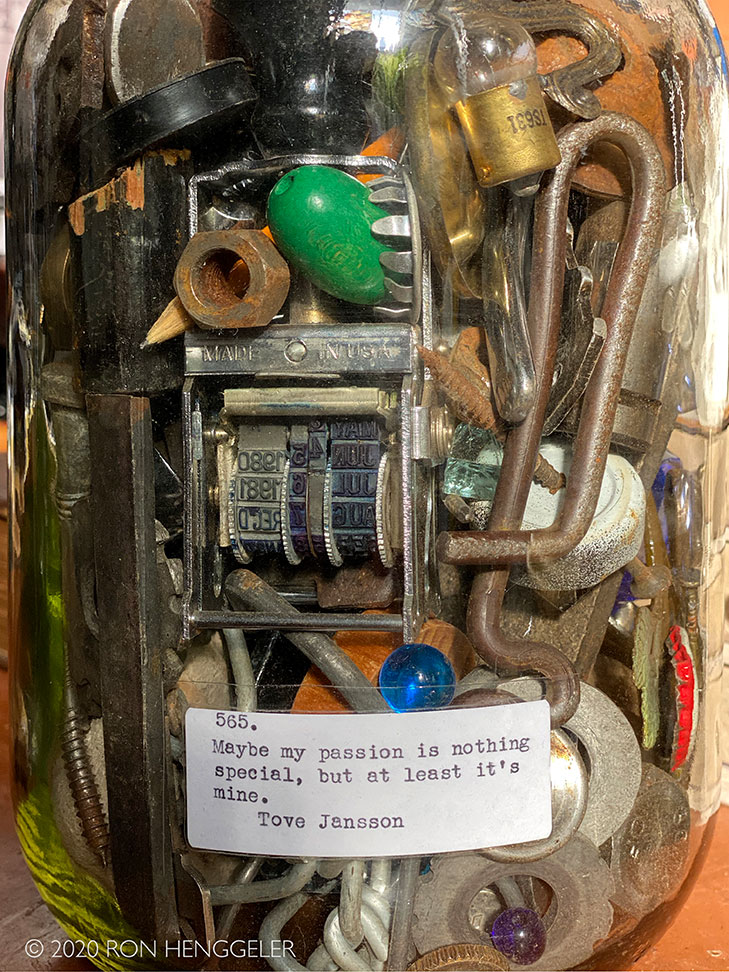 TS631
MADE IN USA
MAY
JUN
1980
JUL
1981
AUG
REC'D
565.
Maybe my passion is nothing
special, but at least it's
mine.
Tove Jansson
© 2020 RON HENGGELER